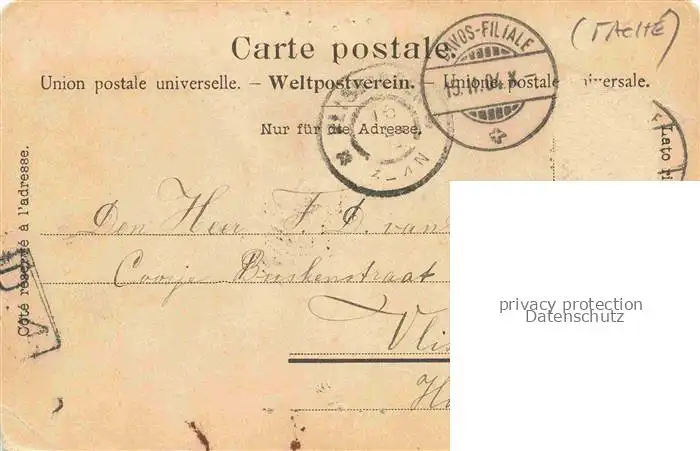 (TACHE)
DAVOS-FILIALE
15.II.04.X
Carte postale.
Union postale universelle. – Weltpostverein. – Unione postale universale.
Nur für die Adresse.
Côté réservé à l'adresse.
Den Heer F. D. van
Coosje Buskenstraat
Vlis
H
privacy protection
Datenschutz